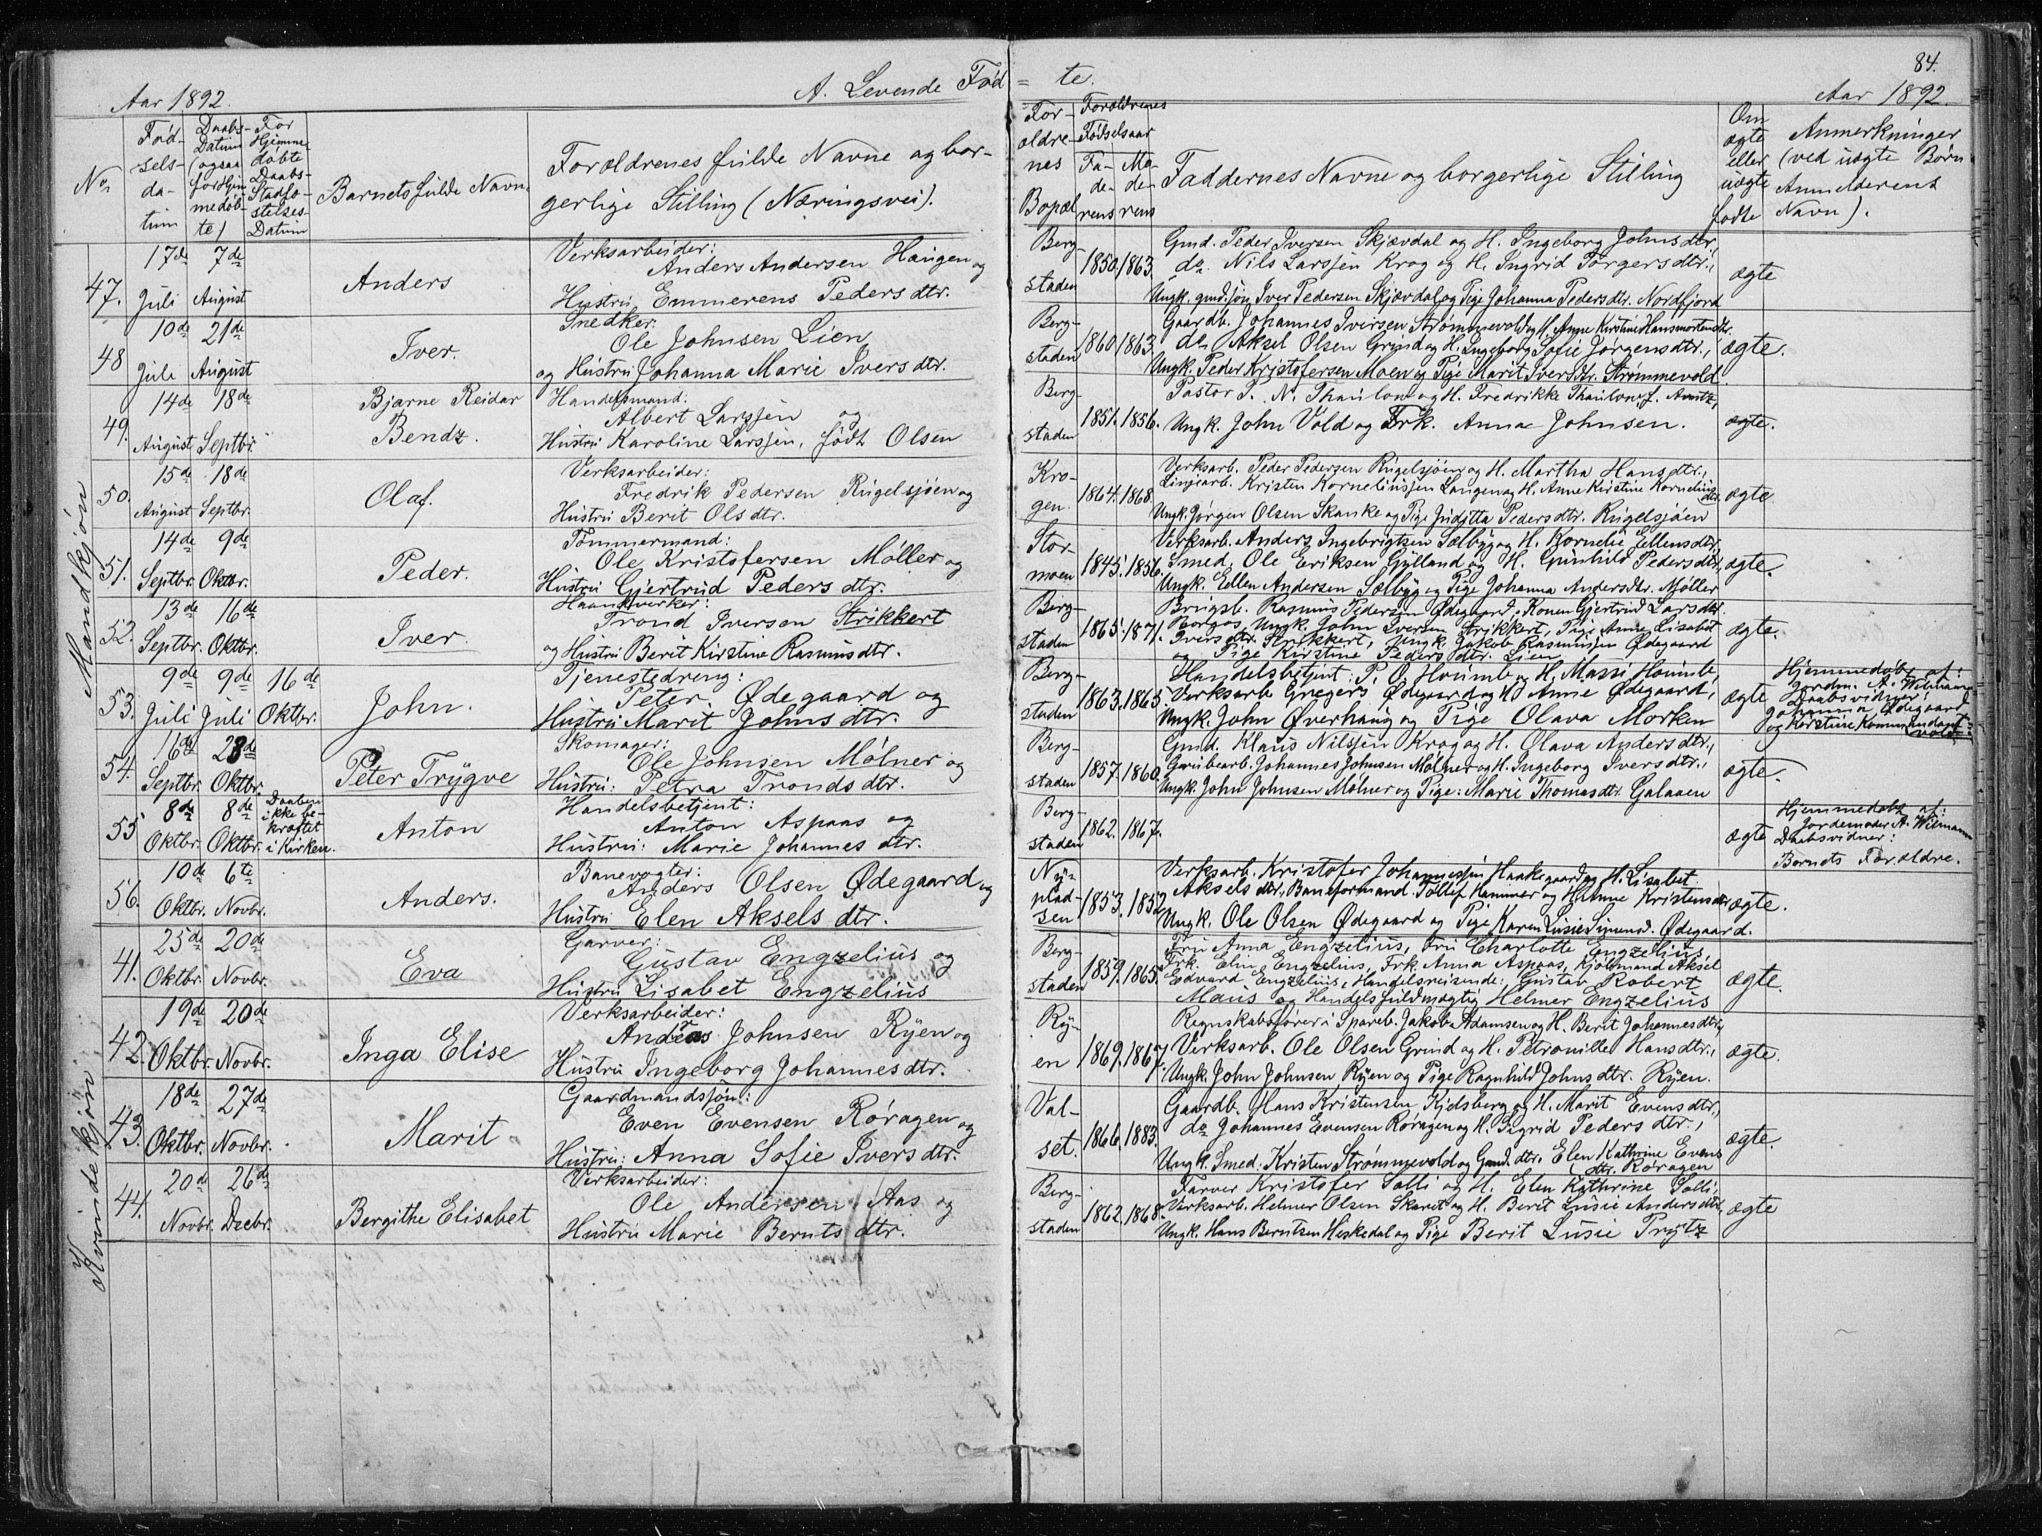 84.
Aar 1892.
A. Levende Fød = te.
Aar 1892.
No
Fød-
sels-
da-
tum
Daabs-
Datum
(ogsaa
for Hjem
medøb-
te)
For
Hjemme
døbte
Daabs-
Stadfæ-
stelses-
Datum
Barnets fulde Navn
Forældrenes fulde Navne og bor-
gerlige Stilling (Næringsvei).
For-
ældre-
nes
Bopæl
Forældrenes
Fødselsaar
Fa-
de-
rens
Mo-
de-
rens
Faddernes Navne og borgerlige Stilling
Om
ægte
eller
uægte
fødte
Anmerkninger
(ved uægte Børn
Anmelderens
Navn).
Mandkjøn
47.
17de
Juli
7de
August
Anders
Verksarbeider:
Anders Andersen Haugen og
Hustru Emmerens Pedersdtr.
Berg-
staden
1850.
1863.
Gmd. Peder Iversen Skjævdal og H. Ingeborg Johnsdtr.,
do. Nils Larssen Krog og H. Ingrid Jørgersdtr.,
Ungk. gmd.søn Iver Pedersen Skjævdal og Pige Johanna Pedersdtr. Nordfjord
ægte
48
10de
Juli
21de
August
Iver.
Snedker:
Ole Johnsen Lien
og Hustru Johanna Marie Iversdtr.
Berg-
staden
1860.
1863.
Gaardb. Johannes Iversen Strømmevold og H. Anne Kirstine Hansmortensdtr.
do. Aksel Olsen Grind og H. Ingeborg Sofie Jørgensdtr.,
Ungk. Peder Kristofersen Moen og Pige Marit Iversdtr. Strømmevold.
ægte.
49.
14de
August
18de
Septbr.
Bjarne Reidar
Bendz.
Handelsmand:
Albert Larssen og
Hustru Karoline Larssen, født Olsen
Berg-
staden
1851.
1856.
Pastor J. N. Thaulow og H. Fredrikke Thaulow, f. Arntz,
Ungk. John Vold og Frk. Anna Johnsen.
ægte.
50.
15de
August
18de
Septbr.
Olaf.
Verksarbeider:
Fredrik Pedersen Rugelsjøen og
Hustru Berit Olsdtr.
Kro-
gen.
1864.
1868.
Verksarb. Peder Pedersen Rugelsjøen og H. Martha Hansdtr.,
Linjearb. Kristen Korneliussen Langen og H. Anne Kirstine Kornelius
dtr.
Ungk. Jørgen Olsen Skanke og Pige Juditta Pedersdtr. Rugelsjøen
ægte
51.
14de
Septbr.
9de
Oktbr.
Peder.
Tømmermand:
Ole Kristofersen Møller og
Hustru Gjertrud Pedersdtr.
Stor-
moen
1845.
1856.
Verksarb. Anders Ingebrigtsen Sælbyg og H. Kornelie Ellensdtr.,
Smed. Ole Eriksen Gylland og H. Gunhild Pedersdtr.,
Ungk. Ellen Andersen Sælbyg og Pige Johanna Andersdtr. Møller
ægte.
52.
13de
Septbr.
16de
Oktbr.
Iver.
Haandverker:
Trond Iversen Strikkert
og Hustru Berit Kirstine Rasmusdtr.
Berg-
staden
1865.
1871.
Brugsb. Rasmus Pedersen Ødegaard, Konen Gjertrud Larsdtr.
Borgos, Ungk. John Iversen Strikkert, Pige Anne Lisabet
Iversdtr. Strikkert, Ungk. Jakob Rasmussen Ødegaard
og Pige Kirstine Pedersdtr. Lien
ægte.
53.
9de
Juli
9de
Juli
16de
Oktbr.
John.
Tjenestedreng:
Peter Ødegaard og
Hustru Marit Johnsdtr.
Berg-
staden
1863.
1865.
Handelsbetjent P. O. Houmb og H. Massi Houmb,
Verksarb. Gregers Ødegaard og H. Anne Ødegaard,
Ungk. John Øverhaug og Pige Olava Morken
ægte
Hjemmedøbt af:
Jordm. A. Wilmann
Daabsvidner:
Johanna Ødegaard
og Kirstine Kommandant-
vold.
54.
16de
Septbr.
23de
Oktbr.
Peter Trygve
Skomager:
Ole Johnsen Mølner og
Hustru: Petra Trondsdtr.
Berg-
staden
1857.
1860.
Gmd. Klaus Nilsen Krog og H. Olava Andersdtr.,
Grubearb. Johannes Johnsen Mølner og H. Ingeborg Iversdtr.,
Ungk. John Johnsen Mølner og Pige: Marie Thomasdtr. Galaaen
ægte.
55.
8de
Oktbr.
8de
Oktbr.
Daaben
ikke be-
kræftet
i Kirken.
Anton
Handelsbetjent:
Anton Aspaas og
Hustru: Marie Johannesdtr.
Berg-
staden
1862.
1867.
ægte
Hjemmedøbt af:
Jordemoder A. Wilmann
Daabsvidner:
Barnets Forældre.
56.
10de
Oktbr.
6te
Novbr.
Anders.
Banevogter:
Anders Olsen Ødegaard og
Hustru Elen Akselsdtr.
Ny-
plad-
sen
1853.
1852
Verksarb. Kristofer Johannessen Haakegaard og H. Lisabet
Akselsdtr., Baneformand. Tollef Hammer og H. Anne Kristensdtr.
Ungk. Ole Olsen Ødegaard og Pige Karen Lusie Simensd. Ødegaard.
ægte.
Kvindekjøn
41.
25de
Oktbr.
20de
Novbr.
Eva
Garver:
Gustav Engzelius og
Hustru Lisabet Engzelius
Berg-
staden
1859.
1865.
Fru Anna Engzelius, Fru Charlotte Engzelius,
Frk. Elin Engzelius, Frk. Anna Aspaas, Kjøbmand Aksel
Edvard Engzelius, Handelsreisende: Gustav Robert
Maus og Handelsfuldmægtig Helmer Engzelius
ægte.
42.
19de
Oktbr.
20de
Novbr.
Inga Elise
Verksarbeider:
Andreas Johnsen Ryen og
Hustru Ingeborg Johannesdtr.
Ry-
en
1869.
1867.
Regnskabsfører i Spareb. Jakob Adamsen og H. Berit Johannesdtr.,
Verksarb. Ole Olsen Grind og H. Petronille Hansdtr.,
Ungk. John Johnsen Ryen og Pige Ragnhild Johnsdtr. Ryen.
ægte.
43.
18de
Oktbr.
27de
Novbr.
Marit
Gaardmandssøn:
Even Evensen Røragen og
Hustru: Anna Sofie Iversdtr.
Val-
set.
1866.
1883.
Gaardb. Hans Kristensen Kjdsberg og H. Marit Evensdtr.,
do Johannes Evensen Røragen og H. Sigrid Pedersdtr.,
Ungk. Smed. Kristen Strømmevold og Gmd.dtr. Elen Kathrine Evens
dtr. Røragen
ægte.
44.
20de
Novbr.
26de
Decbr.
Bergithe Elisabet
Verksarbeider:
Ole Andersen Aas og
Hustru Marie Berntsdtr.
Berg-
staden
1862.
1868.
Farver Kristofer Solli og H. Elen Kathrine Solli
Verksarb. Helmer Olsen Skaret og H. Berit Lusie Andersdtr.
Ungk. Hans Berntsen Heskedal og Pige Berit Lusie Prytz
ægte